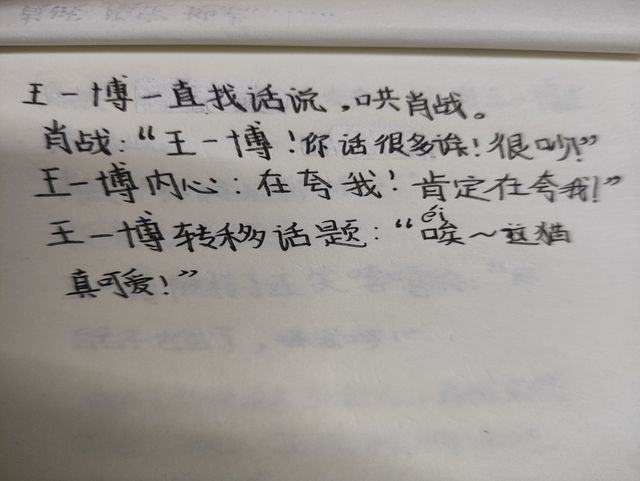 王一博一直找话说，哄肖战。
肖战：“王一博！你话很多诶！很吵！”
王一博内心：在夸我！肯定在夸我！”
王一博转移话题：“唉～这猫
éi
真可爱！”